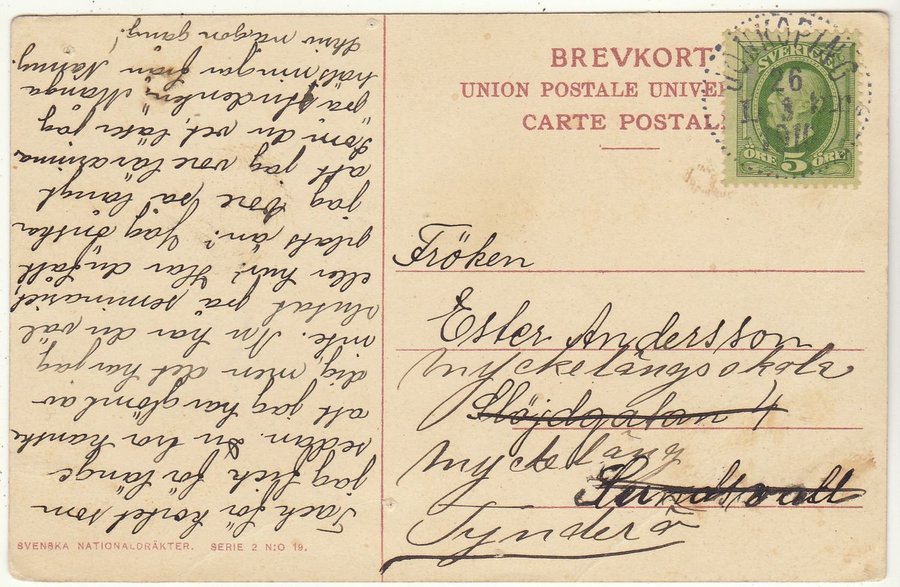 BREVKORT
UNION POSTALE UNIVER
CARTE POSTALE
SVERIGE
ÖRE 5 ÖRE
26
Fröken
Ester Andersson
Myckelängsskola
Slöjdgatan 4
Myckeläng
Sundsvall
Tynderö
Tack för kortet som
jag fick för länge
sedan. Du tror kanske
att jag har glömt av
dig, men det har jag
inte. Nu har du väl
slutat på seminariet,
eller hur? Har du fått
plats än? Jag önskar
jag vore så långt
att jag vore lärarinna
Som du vet, läser jag
på studenten. Många
hälsningar från Nanny.
Skriv någon gång!
SVENSKA NATIONALDRÄKTER. SERIE 2 N:O 19.